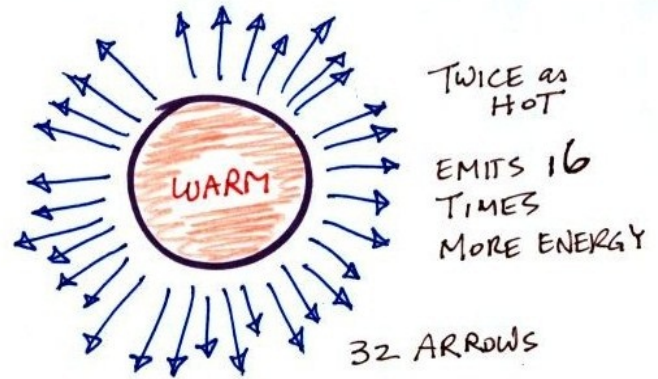 TWICE as
HOT
WARM
EMITS 16
TIMES
MORE ENERGY
32 ARROWS